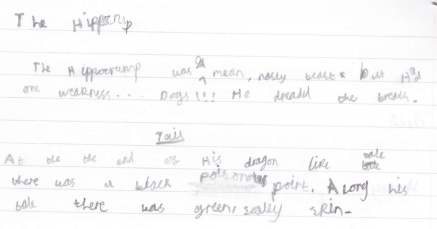 The Hippocrup
The Hippocrump was a mean, nasty beast & But Had
one weakness... Dogs!!! He dreaded the breath.
Tail
At the the end of His dragon like tale
there was a black poisonous point. Along his
tale there was green, scaley skin-